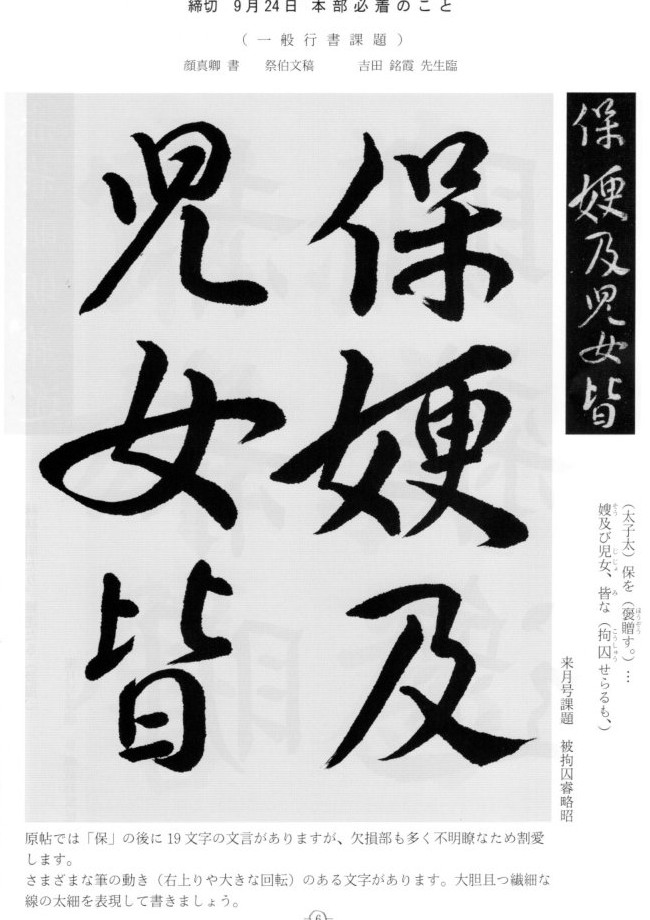 締切 9月24日 本部必着のこと
(一般行書課題)
顔真卿 書 祭伯文稿 吉田 銘霞 先生臨
保㛐及児女皆
保㛐及
児女皆
(太子太)保を(褒贈す。)…
嫂及び児女、皆な(拘囚せらるも、)
来月号課題 被拘囚睿略昭
原帖では「保」の後に19文字の文言がありますが、欠損部も多く不明瞭なため割愛
します。
さまざまな筆の動き(右上りや大きな回転)のある文字があります。大胆且つ繊細な
線の太細を表現して書きましょう。
6